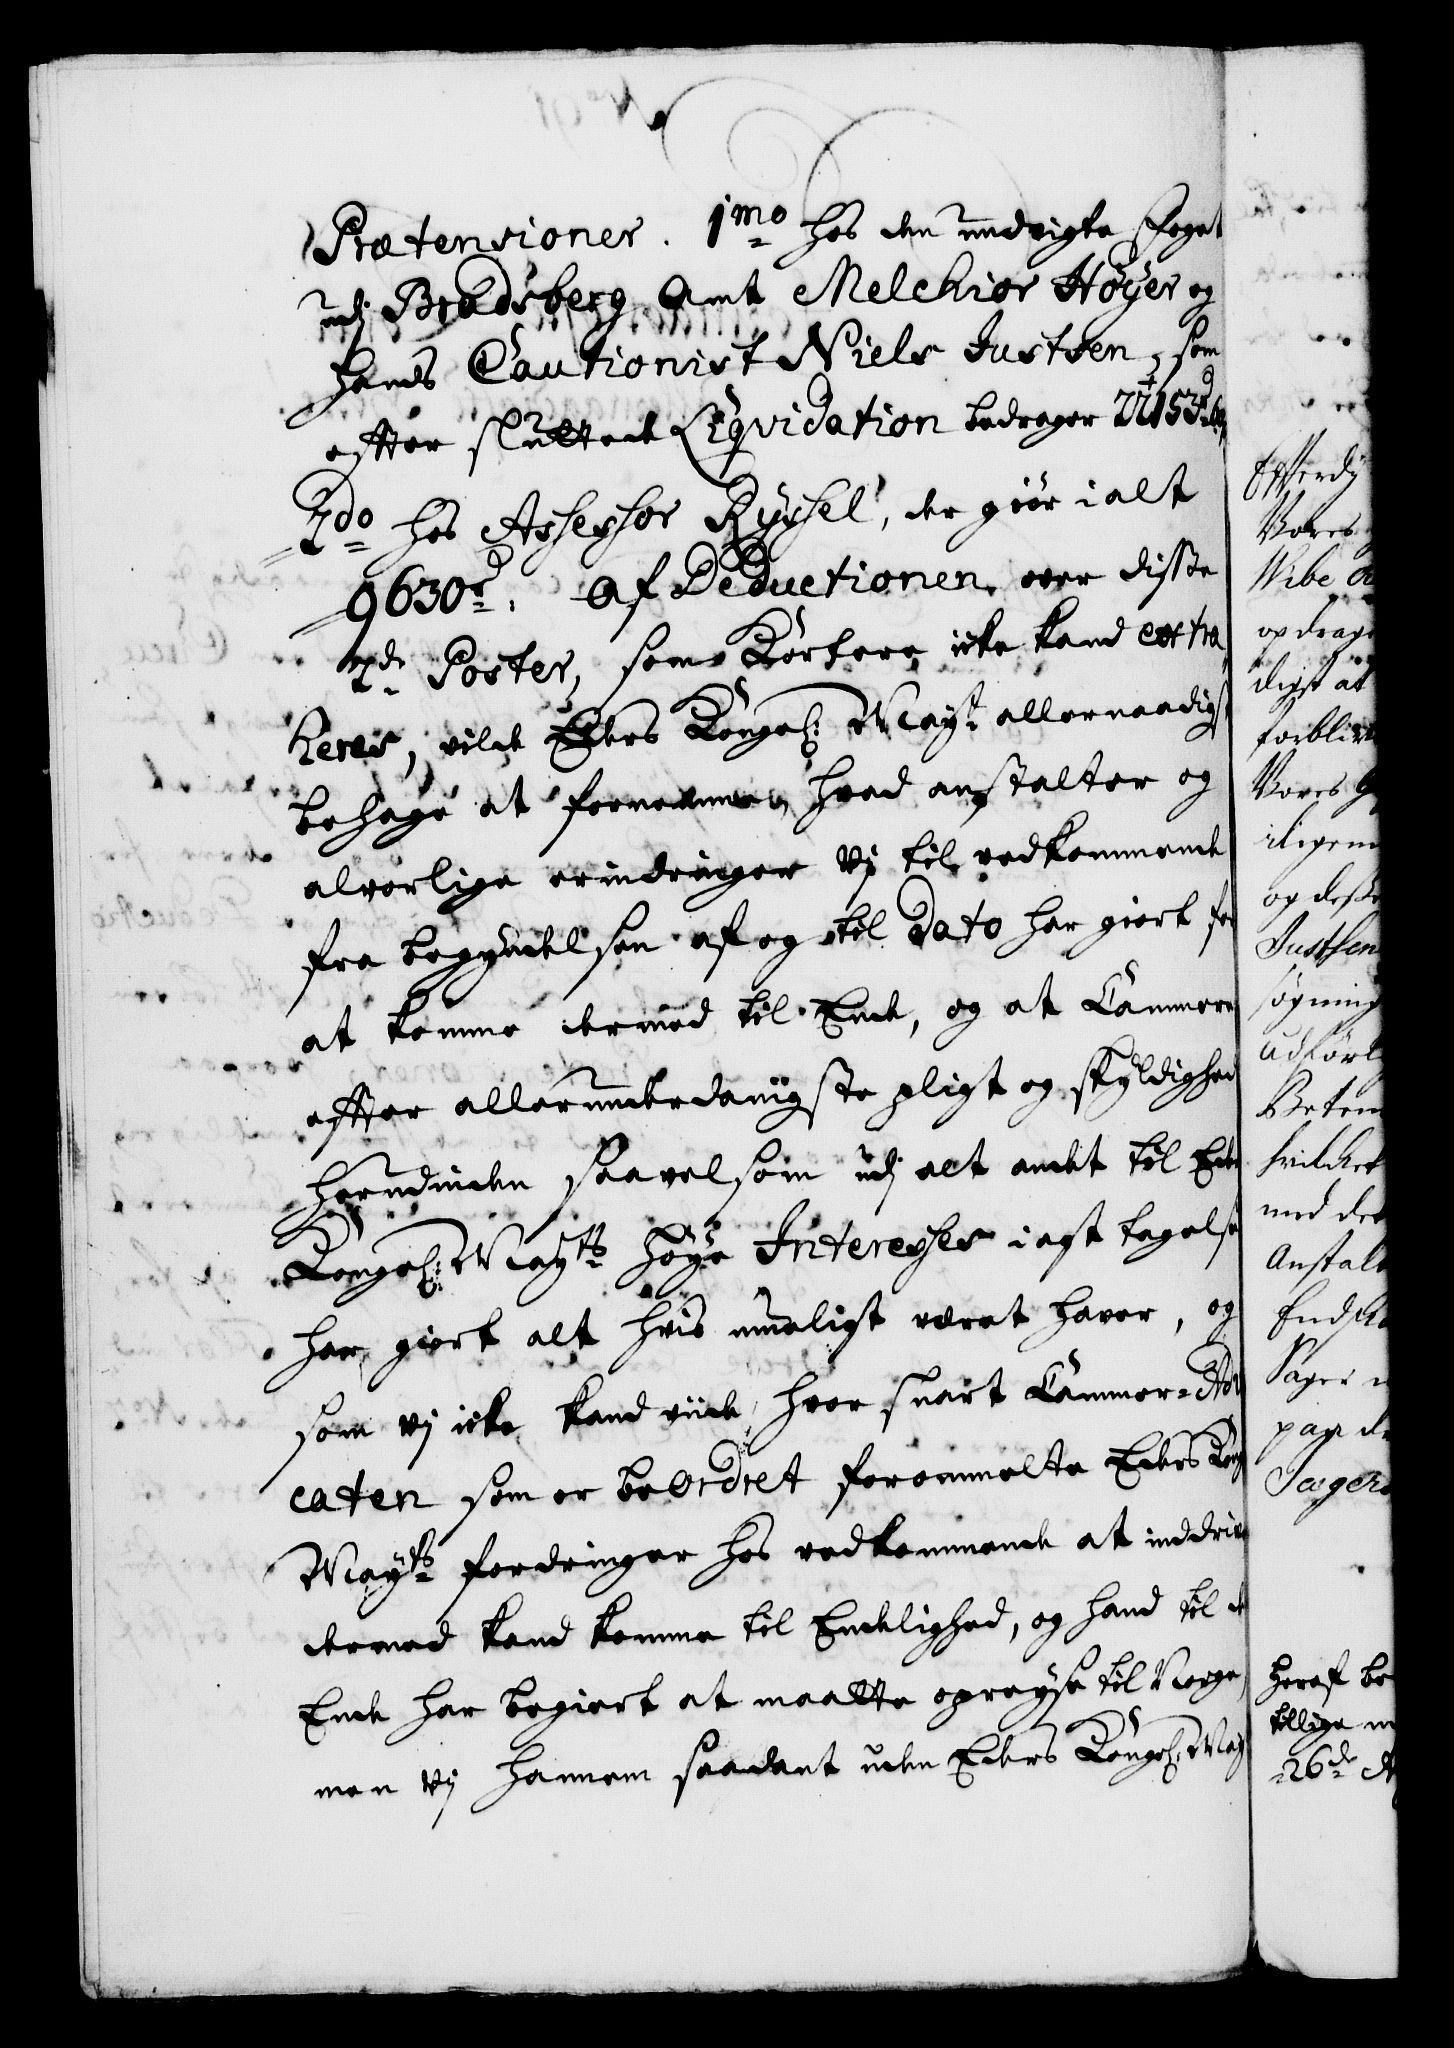 Prætensioner. 1mo hos den undvigte Foget
udj Bradsberg Amt Melchior Höyer og
hans Cautionist Niels Justsen, som
efter sluttede Liqvidation bedrager 22153 rd
2do hos Assessor Ryssel, der giör i alt
9630 rd: Af Deductionen over disse
2de Poster, som Kortere icke kand extra
heres, vilde Eders Kongel: Mayt allernaadigst
behage at fornemme, hvad anstalter og
alvorlige erindringer Vj til vedkommende
fra begyndelsen af og til Dato har giort for
at komme dermed til Ende, og at Cammeret
efter allerunderdanigste pligt og skyldighed
herudinden saavelsom udj alt andet til Eders
Kongel: Mayts höye Interesses iagttagelse
har giort alt hvis mueligt været haver, og
som vj icke kand viide, hvor snart Cammer-Advo
caten som er beordret forommelte Eders Kongl
Mayts fordringer hos vedkommende at inddrive
dermed kand komme til Endelighed, og hand til d
Ende har begiert at maatte opreyse til Norge,
men vj hannem saadant uden Eders Kongel: May
Efterdj
Vores
Wibe
opdrag
digst at
forblive
Vores
og desse
Justsen
søgning
udførl
Betem
hvilcket
med de
Anstalt
Endsk
Sager
paa d
Jæger
heraf be
tillige m
26de A